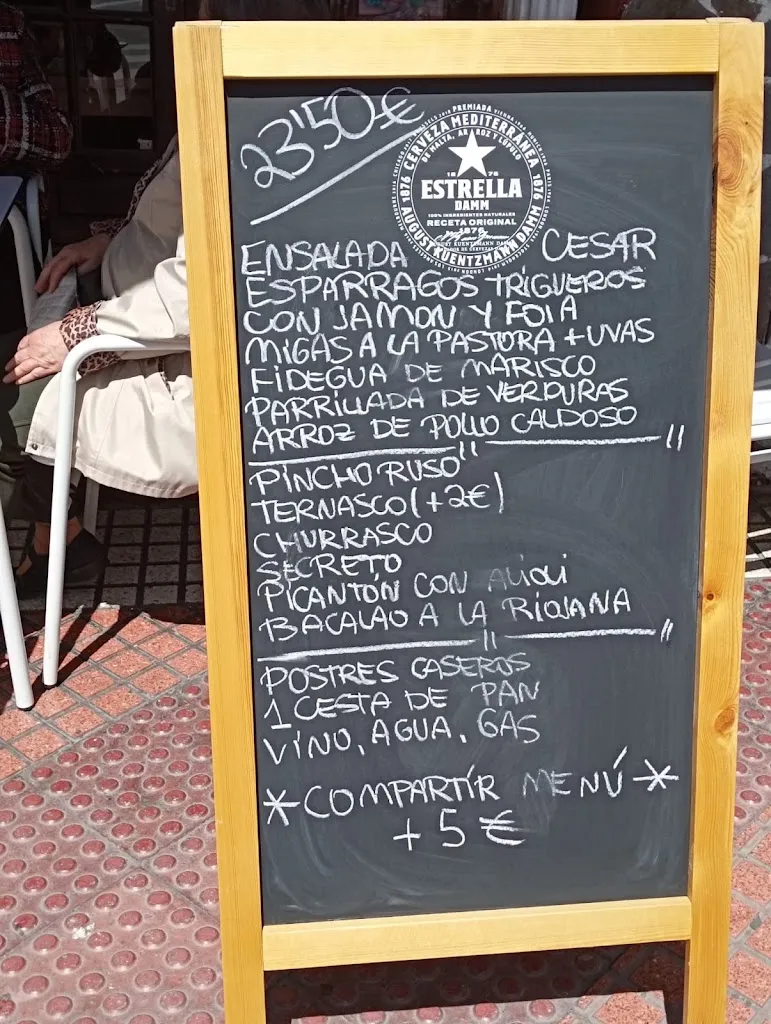 23'50€
PREMIADA
CERVEZA MEDITERRANEA
DE MALTA, ARROZ Y LÚPULO
1876
1876
1876
ESTRELLA
DAMM
100% INGREDIENTES NATURALES
RECETA ORIGINAL
1876
AUGUST KUENTZMANN DAMM
ENSALADA CESAR
ESPARRAGOS TRIGUEROS
CON JAMON Y FOIA
MIGAS A LA PASTORA + UVAS
FIDEGUA DE MARISCO
PARRILLADA DE VERDURAS
ARROZ DE POLLO CALDOSO
PINCHO RUSO
TERNASCO (+2€)
CHURRASCO
SECRETO
PICANTÓN CON ALIOLI
BACALAO A LA RIOJANA
POSTRES CASEROS
1 CESTA DE PAN
VINO, AGUA, GAS
*COMPARTÍR MENÚ*
+5€